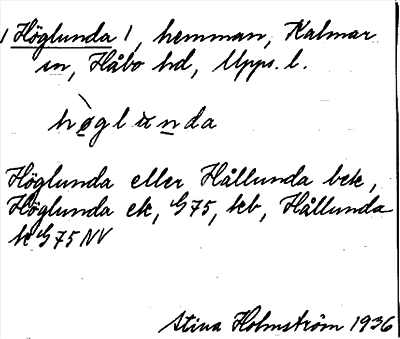 /Höglunda/, hemman, Kalmar
sn, Håbo hd, Upps. l.
hø̀glu̅nda
Höglunda eller Hållunda bck,
Höglunda ek, G75, kb, Hållunda
k G75 NV
Stina Holmström 1936